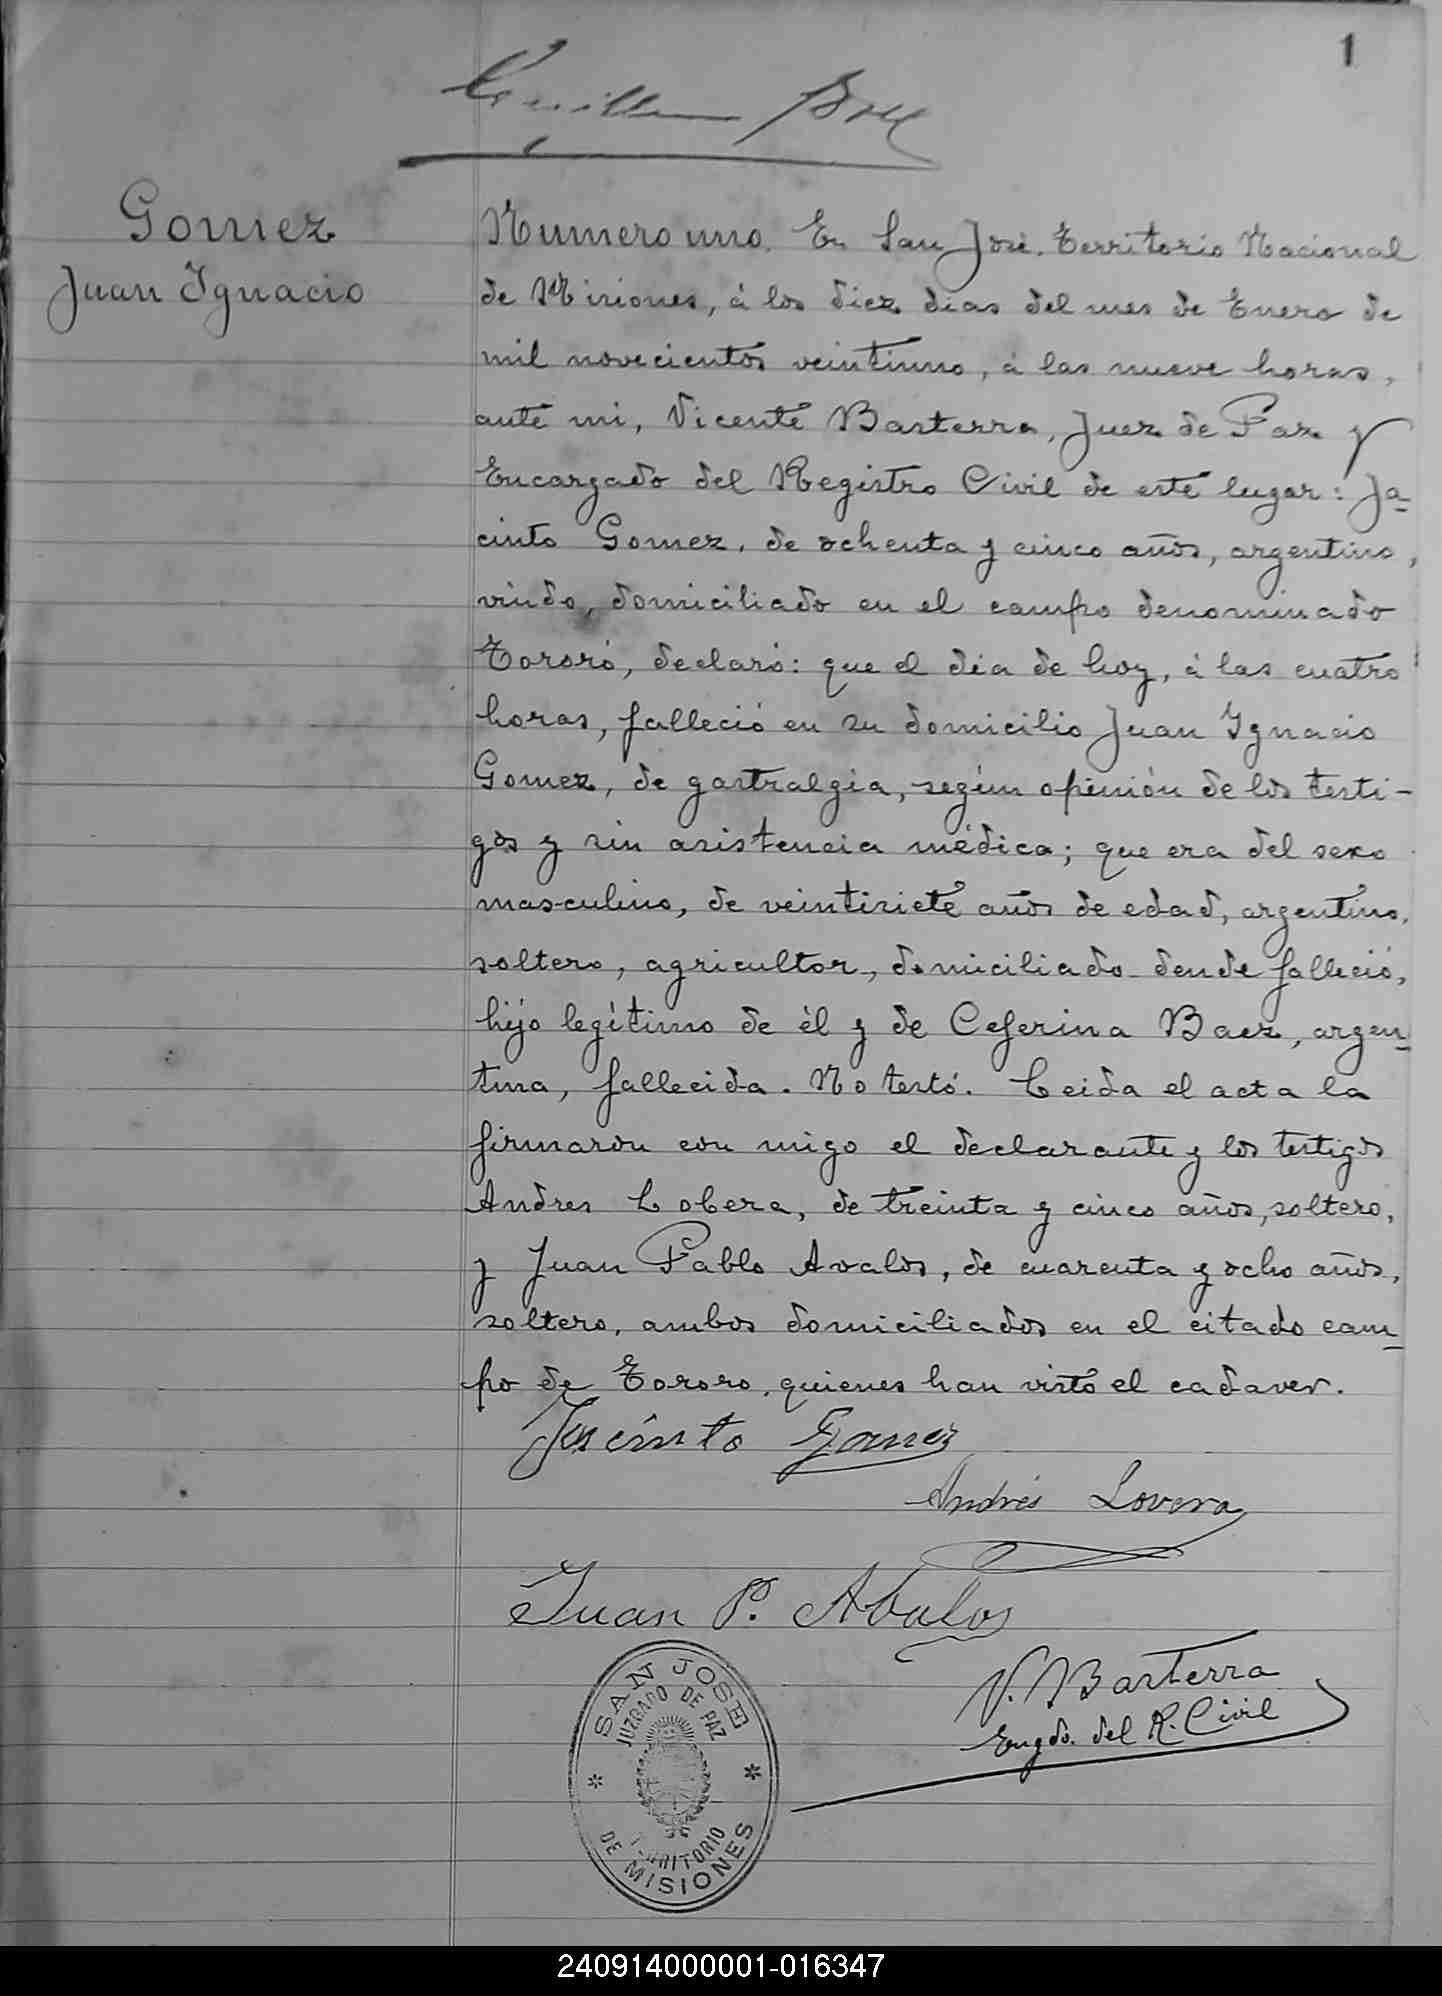 1
Gomez
Juan Ignacio
Numero uno. En San José, Territorio Nacional
de Misiones, á los diez dias del mes de Enero de
mil novecientos veintiuno, á las nueve horas,
ante mi, Vicente Basterra, Juez de Paz y
Encargado del Registro Civil de este lugar: Ja-
cinto Gomez, de ochenta y cinco años, argentino,
viudo, domiciliado en el campo denominado
Tororó, declaró: que el dia de hoy, á las cuatro
horas, falleció en su domicilio Juan Ignacio
Gomez, de gastralgia, según opinión de los testi-
gos y sin asistencia médica; que era del sexo
masculino, de veintisiete años de edad, argentino,
soltero, agricultor, domiciliado donde falleció,
hijo legítimo de él y de Ceferina Baez, argen-
tina, fallecida. No testó. Leida el acta la
firmaron con migo el declarante y los testigos
Andres Lobera, de treinta y cinco años, soltero,
y Juan Pablo Avalos, de cuarenta y ocho años,
soltero, ambos domiciliados en el citado cam-
po de Tororo, quienes han visto el cadaver.
Jacinto Gomez
Andrés Lovera
Juan P. Abalos
V. Basterra
Engdo. del R. Civil
SAN JOSE
JUZGADO DE PAZ
TERRITORIO
DE MISIONES
240914000001-016347